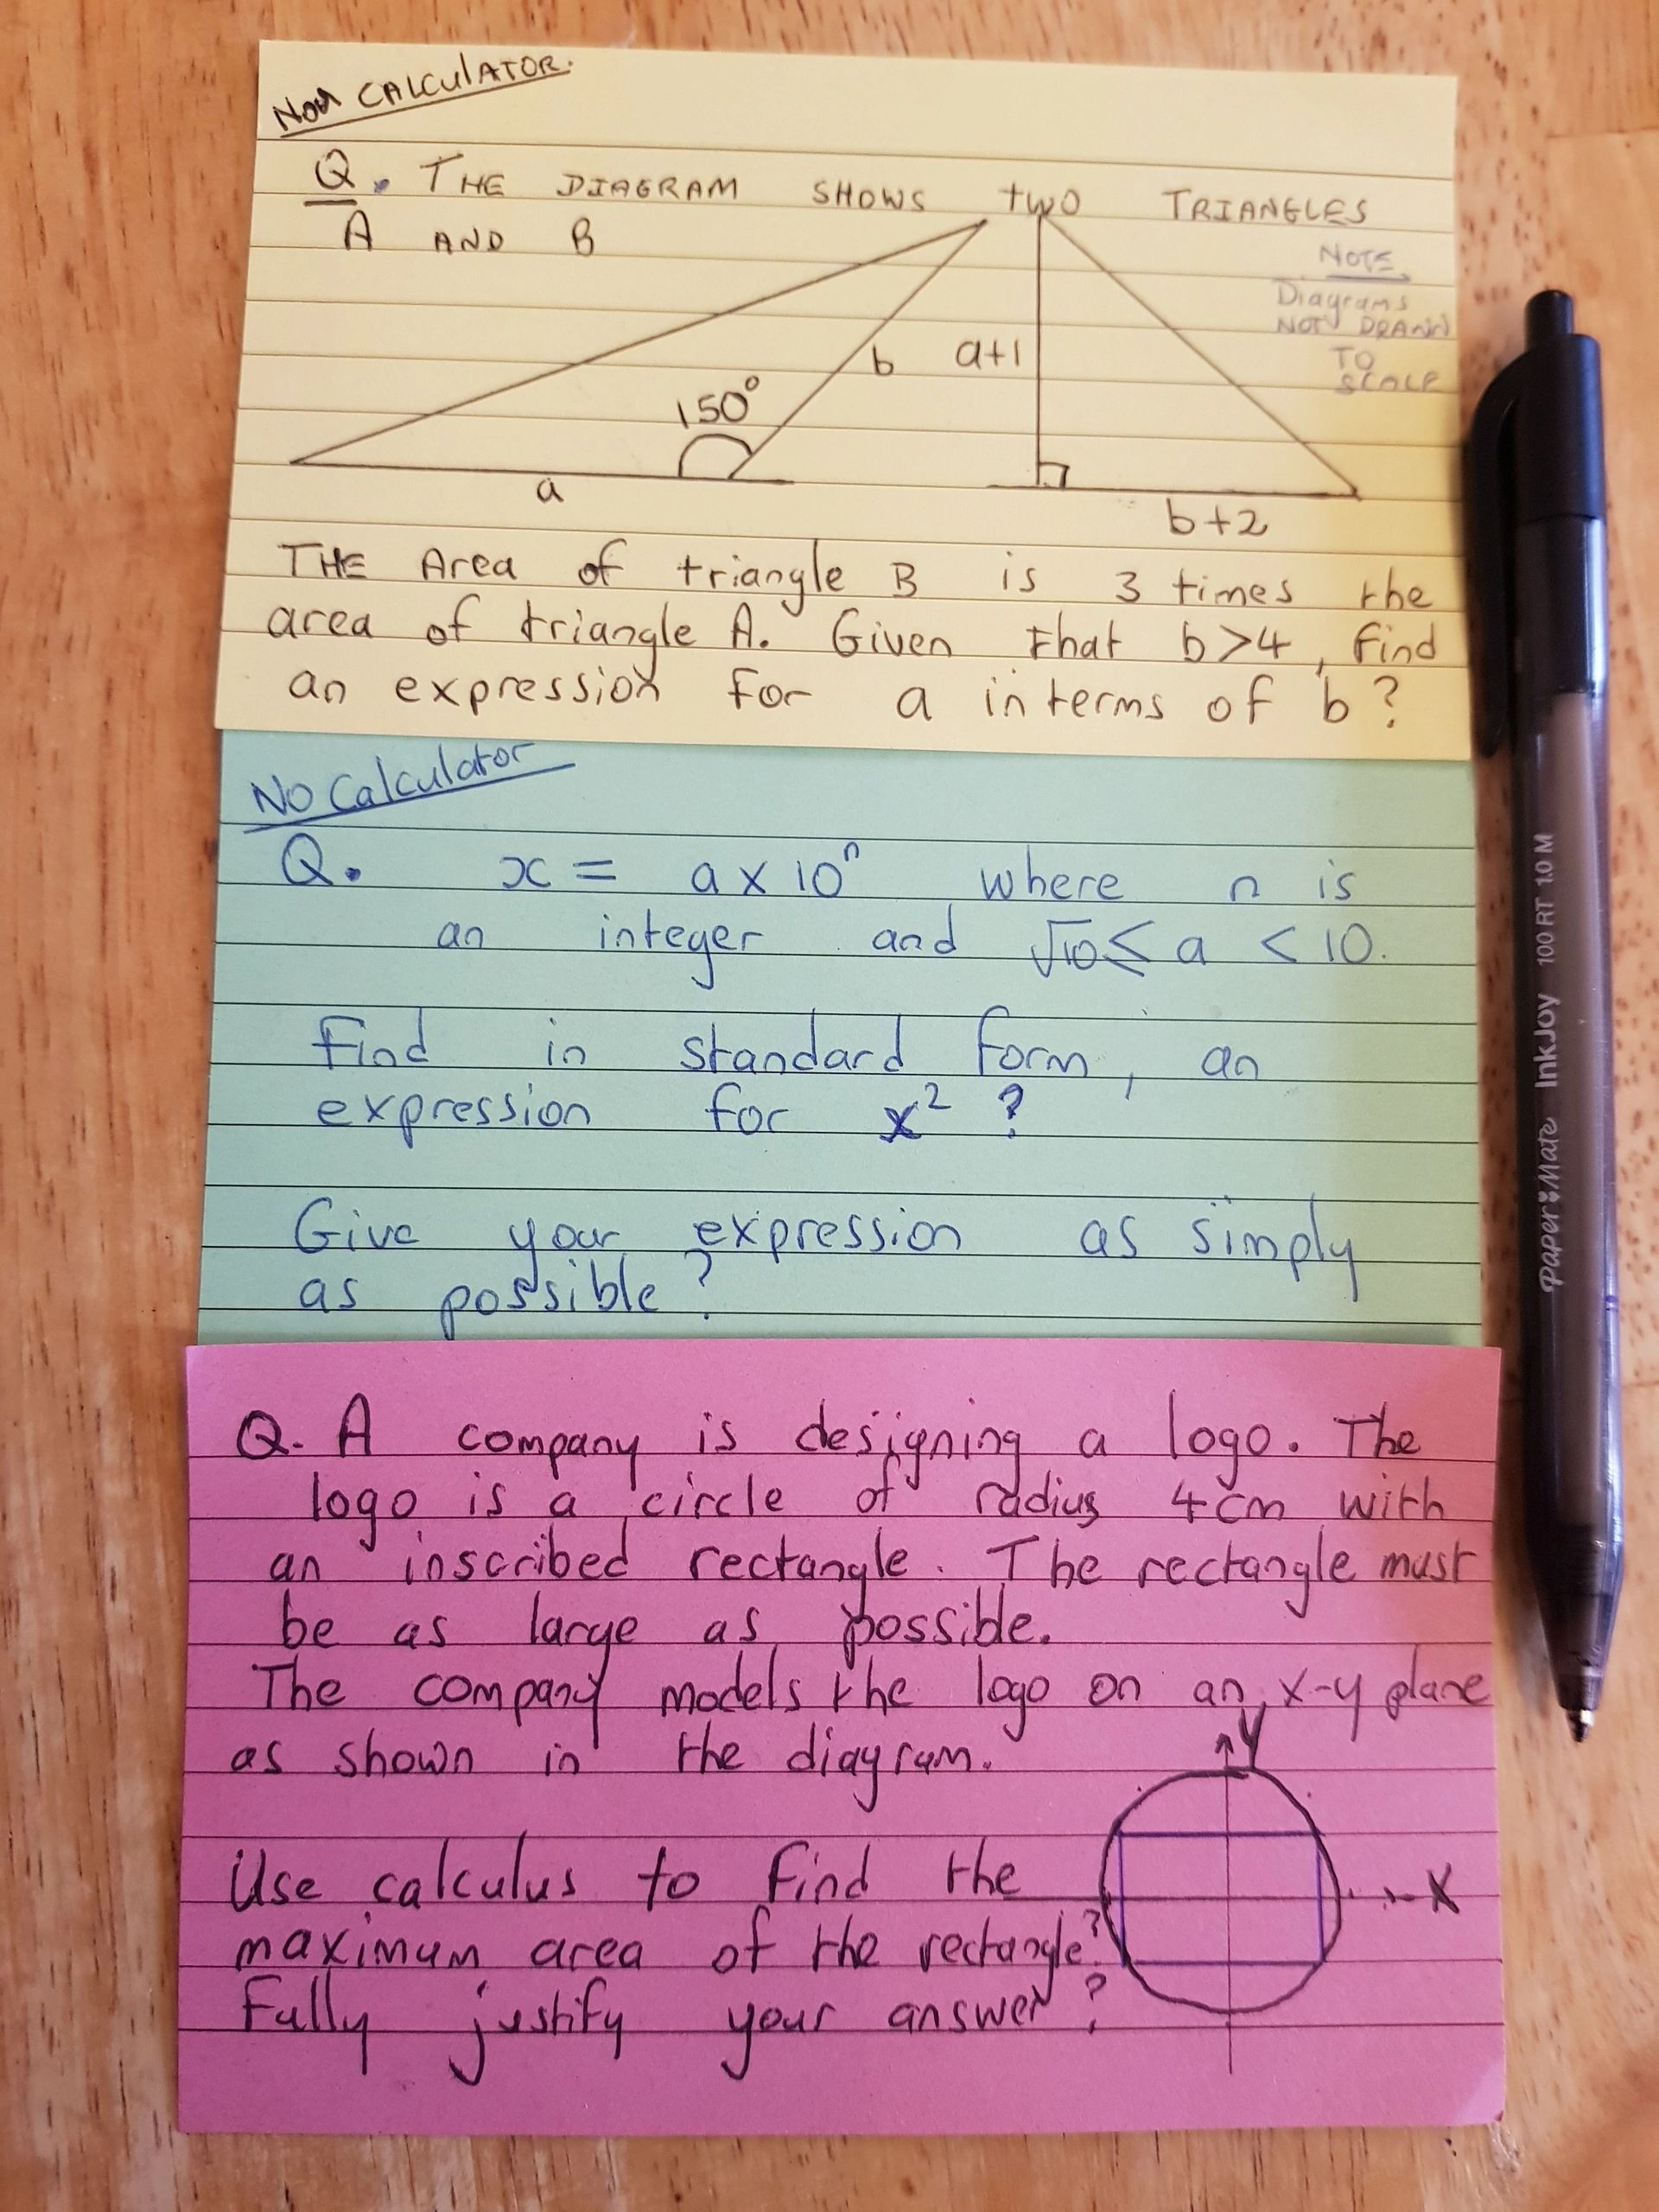 Non CALCULATOR.
Q. THE DIAGRAM SHOWS TWO TRIANGLES
A AND B
NOTE
Diagrams
NOT DRAWN
TO
SCALE
150°
b
a+1
a
b+2
THE Area of triangle B is 3 times the
area of triangle A. Given that b>4, find
an expression for a in terms of b?
No Calculator
Q. x = a x 10ⁿ where n is
an integer and √10 ≤ a < 10.
Find in standard form, an
expression for x² ?
Give your expression as simply
as possible?
Q. A company is designing a logo. The
logo is a circle of radius 4cm with
an inscribed rectangle. The rectangle must
be as large as possible.
The company models the logo on an x-y plane
as shown in the diagram.
Y
X
Use calculus to find the
maximum area of the rectangle?
Fully justify your answer?
Paper Mate InkJoy 100 RT 1.0 M